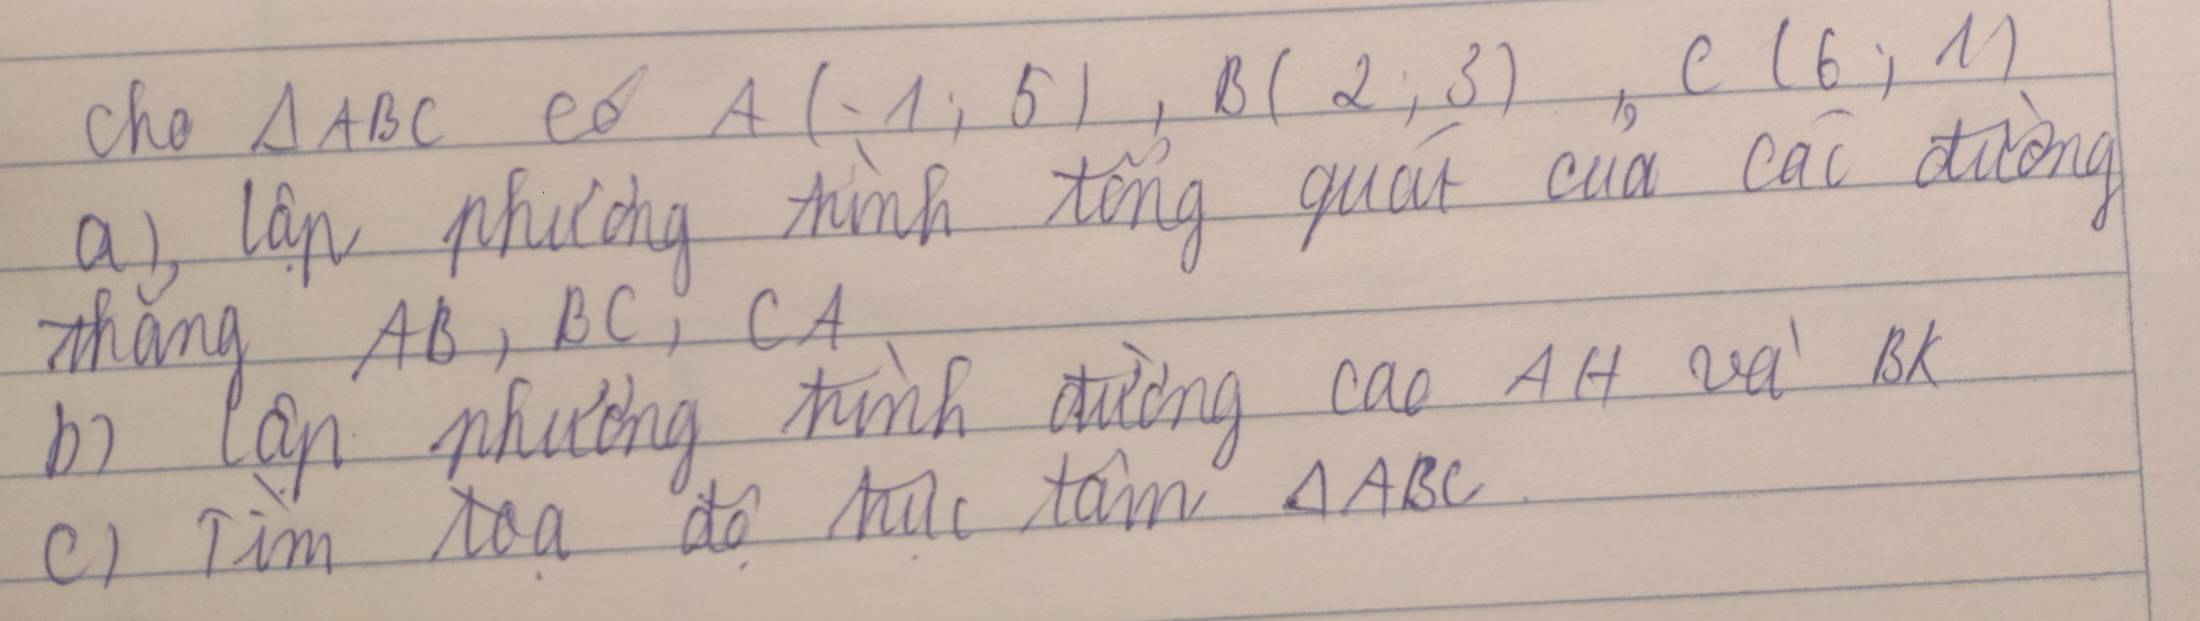 Cho ΔABC có A(-1; 5), B(2; 3), C(6; 1)
a), lập phương trình tổng quát của các đường
thẳng AB, BC, CA
b) lập phương trình đường cao AH và BK
c) Tìm tọa độ trực tâm ΔABC.